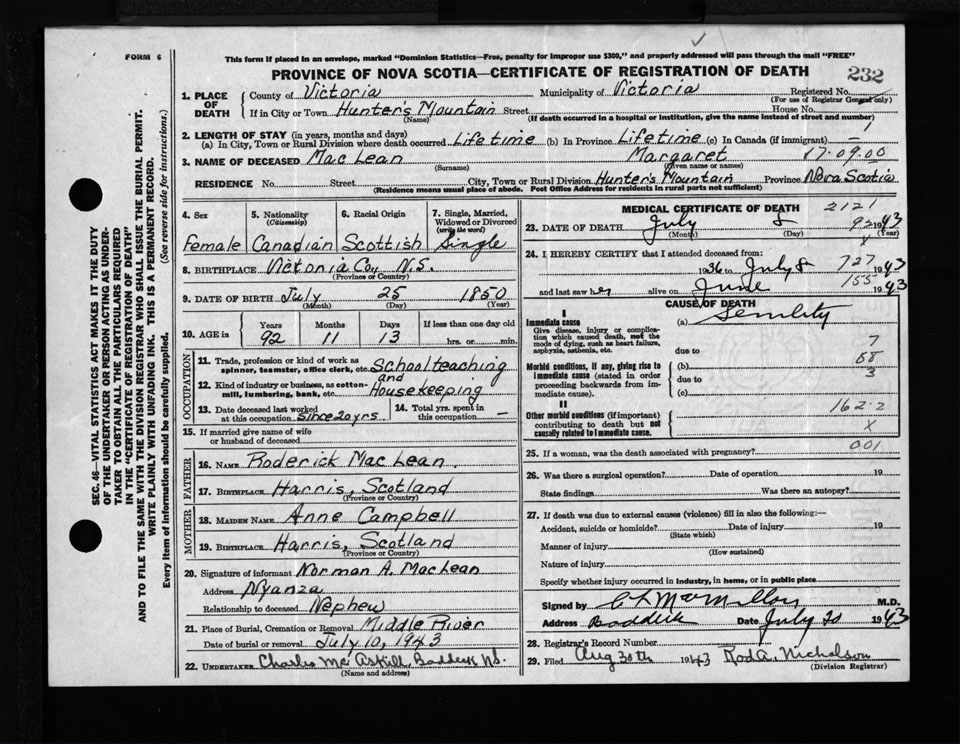 FORM 6
This form if placed in an envelope, marked "Dominion Statistics—Free, penalty for improper use $300," and properly addressed will pass through the mail "FREE"
PROVINCE OF NOVA SCOTIA—CERTIFICATE OF REGISTRATION OF DEATH
232
1. PLACE OF DEATH
County of Victoria Municipality of Victoria Registered No.
(For use of Registrar General only)
If in City or Town Hunter's Mountain Street House No.
(Name) (If death occurred in a hospital or institution, give the name instead of street and number)
2. LENGTH OF STAY (in years, months and days)
(a) In City, Town or Rural Division where death occurred Lifetime (b) In Province Lifetime (c) In Canada (if immigrant) —
3. NAME OF DECEASED Mac Lean Margaret 17.09.00
(Surname) (Given name or names)
RESIDENCE No. Street City, Town or Rural Division Hunter's Mountain Province Nova Scotia
(Residence means usual place of abode. Post Office Address for residents in rural parts not sufficient)
4. Sex
Female
5. Nationality
(Citizenship)
Canadian
6. Racial Origin
Scottish
7. Single, Married,
Widowed or Divorced
(write the word)
Single
8. BIRTHPLACE Victoria Coy N.S.
(Province or Country)
9. DATE OF BIRTH July 25 1850
(Month) (Day) (Year)
10. AGE in
Years Months Days If less than one day old
92 11 13 hrs. or min.
OCCUPATION
11. Trade, profession or kind of work as
spinner, teamster, office clerk, etc. School teaching
and
12. Kind of industry or business, as cotton-
mill, lumbering, bank, etc. Housekeeping
13. Date deceased last worked
at this occupation since 20 yrs.
14. Total yrs. spent in
this occupation —
15. If married give name of wife
or husband of deceased
FATHER
16. NAME Roderick Mac Lean
17. BIRTHPLACE Harris, Scotland
(Province or Country)
MOTHER
18. MAIDEN NAME Anne Campbell
19. BIRTHPLACE Harris, Scotland
(Province or Country)
20. Signature of informant Norman A. MacLean
Address Nyanza
Relationship to deceased Nephew
21. Place of Burial, Cremation or Removal Middle River
Date of burial or removal July 10, 1943
22. UNDERTAKER Charles Mc Askill, Baddeck NS.
(Name and address)
MEDICAL CERTIFICATE OF DEATH 2121
23. DATE OF DEATH July 8 1943
92
(Month) (Day) (Year)
24. I HEREBY CERTIFY that I attended deceased from:
1936 to July 8 727 1943
and last saw her alive on June 155 1943
CAUSE OF DEATH
I
Immediate cause
Give disease, injury or complica-
tion which caused death, not the
mode of dying, such as heart failure,
asphyxia, asthenia, etc.
(a) Senility
7
due to 68
Morbid conditions, if any, giving rise to
immediate cause (stated in order
proceeding backwards from im-
mediate cause).
(b) 3
due to
(c)
II
Other morbid conditions (if important)
contributing to death but not
causally related to immediate cause.
162.2
X
25. If a woman, was the death associated with pregnancy? 001
26. Was there a surgical operation? Date of operation 19
State findings Was there an autopsy?
27. If death was due to external causes (violence) fill in also the following:—
Accident, suicide or homicide? Date of injury 19
(State which)
Manner of injury
(How sustained)
Nature of injury
Specify whether injury occurred in industry, in home, or in public place
Signed by C L MacMillan M.D.
Address Baddeck Date July 20 1943
28. Registrar's Record Number
29. Filed Aug 30th 1943 Rod A. Nicholson
(Division Registrar)
SEC. 46—VITAL STATISTICS ACT MAKES IT THE DUTY
OF THE UNDERTAKER OR PERSON ACTING AS UNDER-
TAKER TO OBTAIN ALL THE PARTICULARS REQUIRED
IN THE "CERTIFICATE OF REGISTRATION OF DEATH"
AND TO FILE THE SAME WITH THE DIVISION REGISTRAR WHO SHALL ISSUE THE BURIAL PERMIT.
WRITE PLAINLY WITH UNFADING INK. THIS IS A PERMANENT RECORD.
Every item of information should be carefully supplied. (See reverse side for instructions.)